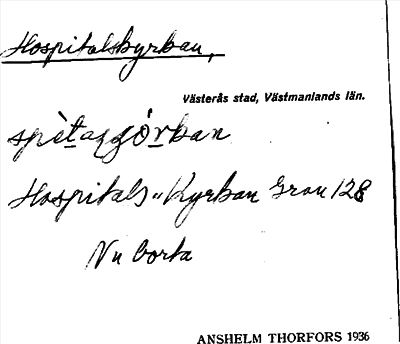 Hospitalskyrkan,
Västerås stad, Västmanlands län.
Hospitals- Kyrkan Grau 128
Nu borta
ANSHELM THORFORS 1936